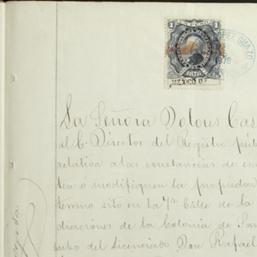 MEXICO
La Señora Dolores Cas
al C. Director del Registro púb
relativa a las constancias de
ten o modifiquen la propiedad
terreno sito en la 7ª Calle de la
diaciones de la Colonia de San
subo del Licenciado Don Rafael